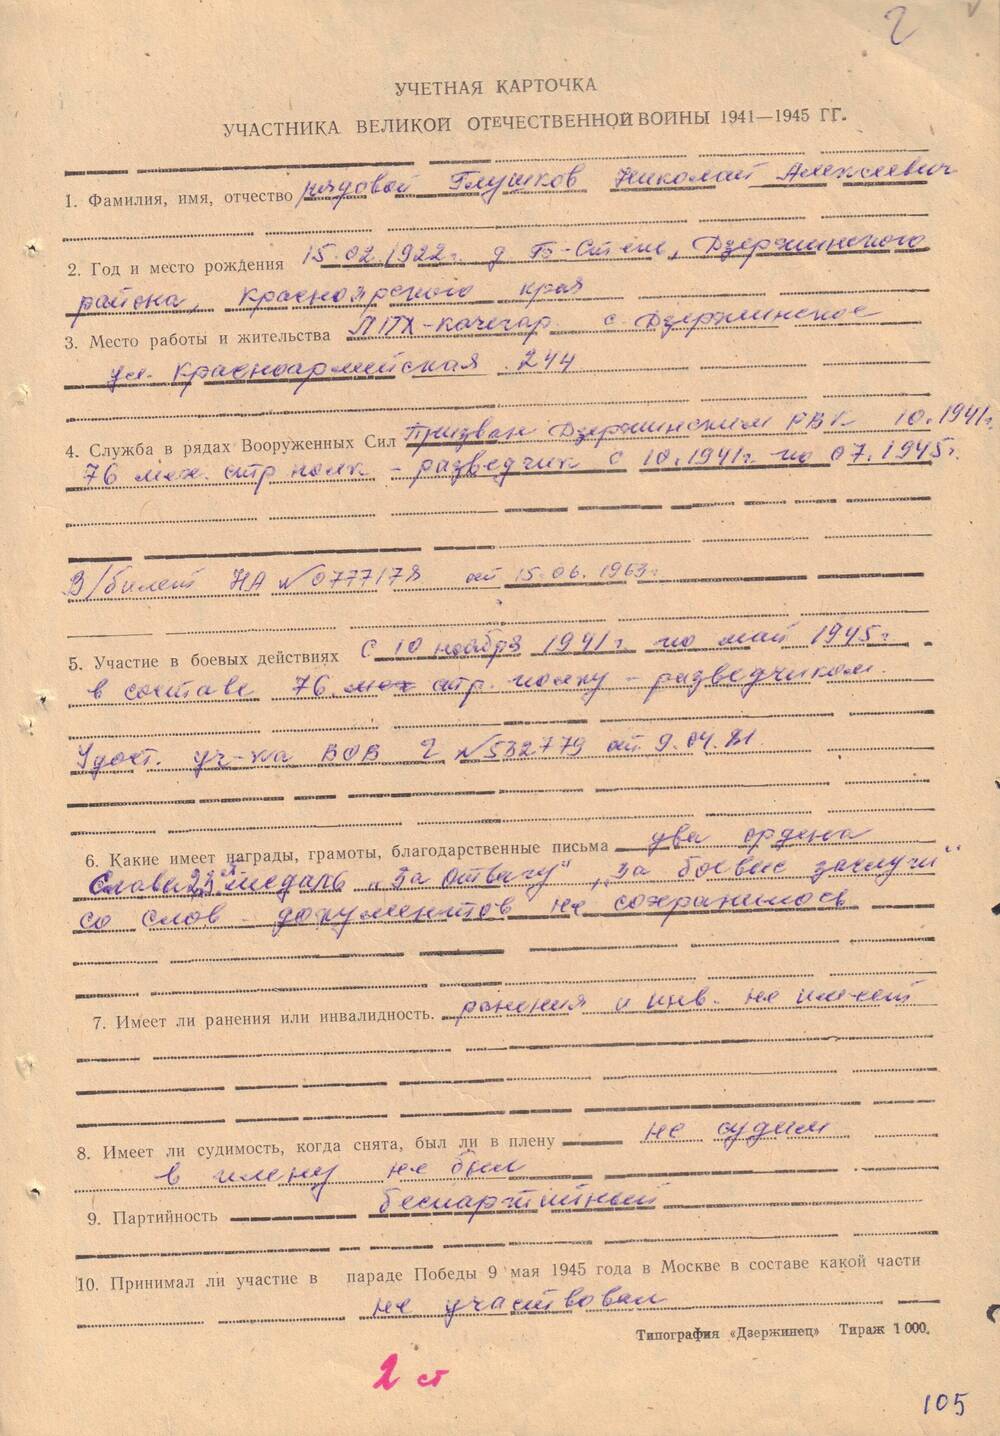 2
УЧЕТНАЯ КАРТОЧКА
УЧАСТНИКА ВЕЛИКОЙ ОТЕЧЕСТВЕННОЙ ВОЙНЫ 1941—1945 ГГ.
1. Фамилия, имя, отчество рядовой Глушков Николай Алексеевич
2. Год и место рождения 15.02.1922г. д Б-Степь, Дзержинского
района, Красноярского края
3. Место работы и жительства ЛПХ-кочегар с. Дзержинское
ул. Красноармейская 244
4. Служба в рядах Вооруженных Сил Призван Дзержинским РВК 10.1941г.
76 мех. стр полк - разведчик с 10.1941г по 07.1945г.
В/билет НА №0777178 от 15.06.1963г
5. Участие в боевых действиях с 10 ноября 1941г по май 1945г
в составе 76 мех стр. полку - разведчиком.
Удост. уч-ка ВОВ Г №532779 от 9.04.81.
6. Какие имеет награды, грамоты, благодарственные письма два ордена
Славы 2,3 ст медаль „За отвагу", „За боевые заслуги"
со слов - документов не сохранилось
7. Имеет ли ранения или инвалидность. ранения и инв. не имеет
8. Имеет ли судимость, когда снята, был ли в плену не судим
в плену не был
9. Партийность беспартийный
10. Принимал ли участие в параде Победы 9 мая 1945 года в Москве в составе какой части
не участвовал
Типография «Дзержинец» Тираж 1 000.
2 ст
105